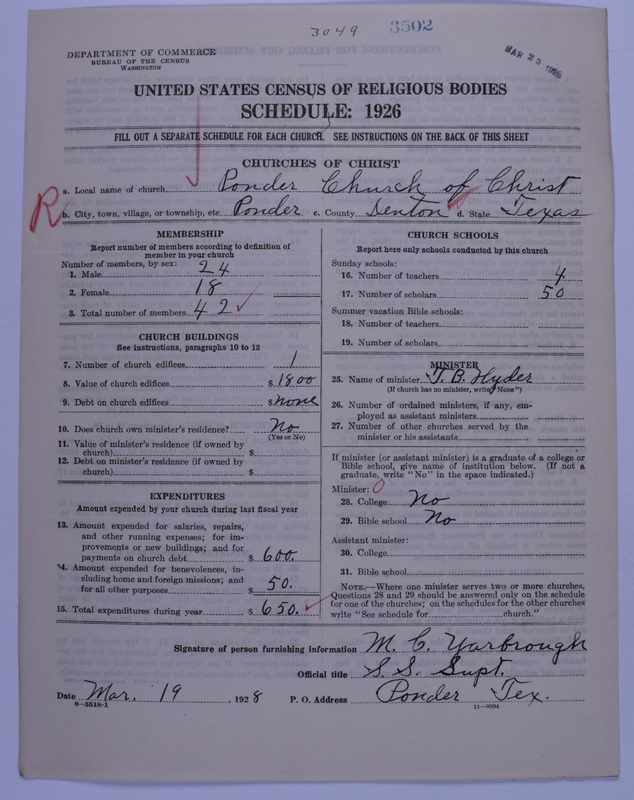 3049 3502
MAR 23 1928
DEPARTMENT OF COMMERCE
BUREAU OF THE CENSUS
WASHINGTON
UNITED STATES CENSUS OF RELIGIOUS BODIES
SCHEDULE: 1926
FILL OUT A SEPARATE SCHEDULE FOR EACH CHURCH. SEE INSTRUCTIONS ON THE BACK OF THIS SHEET
CHURCHES OF CHRIST
a. Local name of church Ponder Church of Christ
R
b. City, town, village, or township, etc. Ponder c. County Denton d. State Texas
MEMBERSHIP
Report number of members according to definition of
member in your church
Number of members, by sex:
1. Male 24
2. Female 18
3. Total number of members 42
CHURCH BUILDINGS
See instructions, paragraphs 10 to 12
7. Number of church edifices 1
8. Value of church edifices $ 1800
9. Debt on church edifices $ none
10. Does church own minister's residence? No
(Yes or No)
11. Value of minister's residence (if owned by
church) $
12. Debt on minister's residence (if owned by
church) $
EXPENDITURES
Amount expended by your church during last fiscal year
13. Amount expended for salaries, repairs,
and other running expenses; for im-
provements or new buildings; and for
payments on church debt $ 600.
14. Amount expended for benevolences, in-
cluding home and foreign missions; and
for all other purposes $ 50.
15. Total expenditures during year $ 650.
CHURCH SCHOOLS
Report here only schools conducted by this church
Sunday schools:
16. Number of teachers 4
17. Number of scholars 50
Summer vacation Bible schools:
18. Number of teachers
19. Number of scholars
MINISTER
25. Name of minister T. B. Hyder
(If church has no minister, write "None")
26. Number of ordained ministers, if any, em-
ployed as assistant ministers
27. Number of other churches served by the
minister or his assistants
If minister (or assistant minister) is a graduate of a college or
Bible school, give name of institution below. (If not a
graduate, write "No" in the space indicated.)
Minister: 0
28. College No
29. Bible school No
Assistant minister:
30. College
31. Bible school
NOTE.—Where one minister serves two or more churches,
Questions 28 and 29 should be answered only on the schedule
for one of the churches; on the schedules for the other churches
write "See schedule for church."
Signature of person furnishing information M. C. Yarbrough
Official title S. S. Supt.
Date Mar. 19, 1928 P. O. Address Ponder Tex.
8—5518-1 11—9004